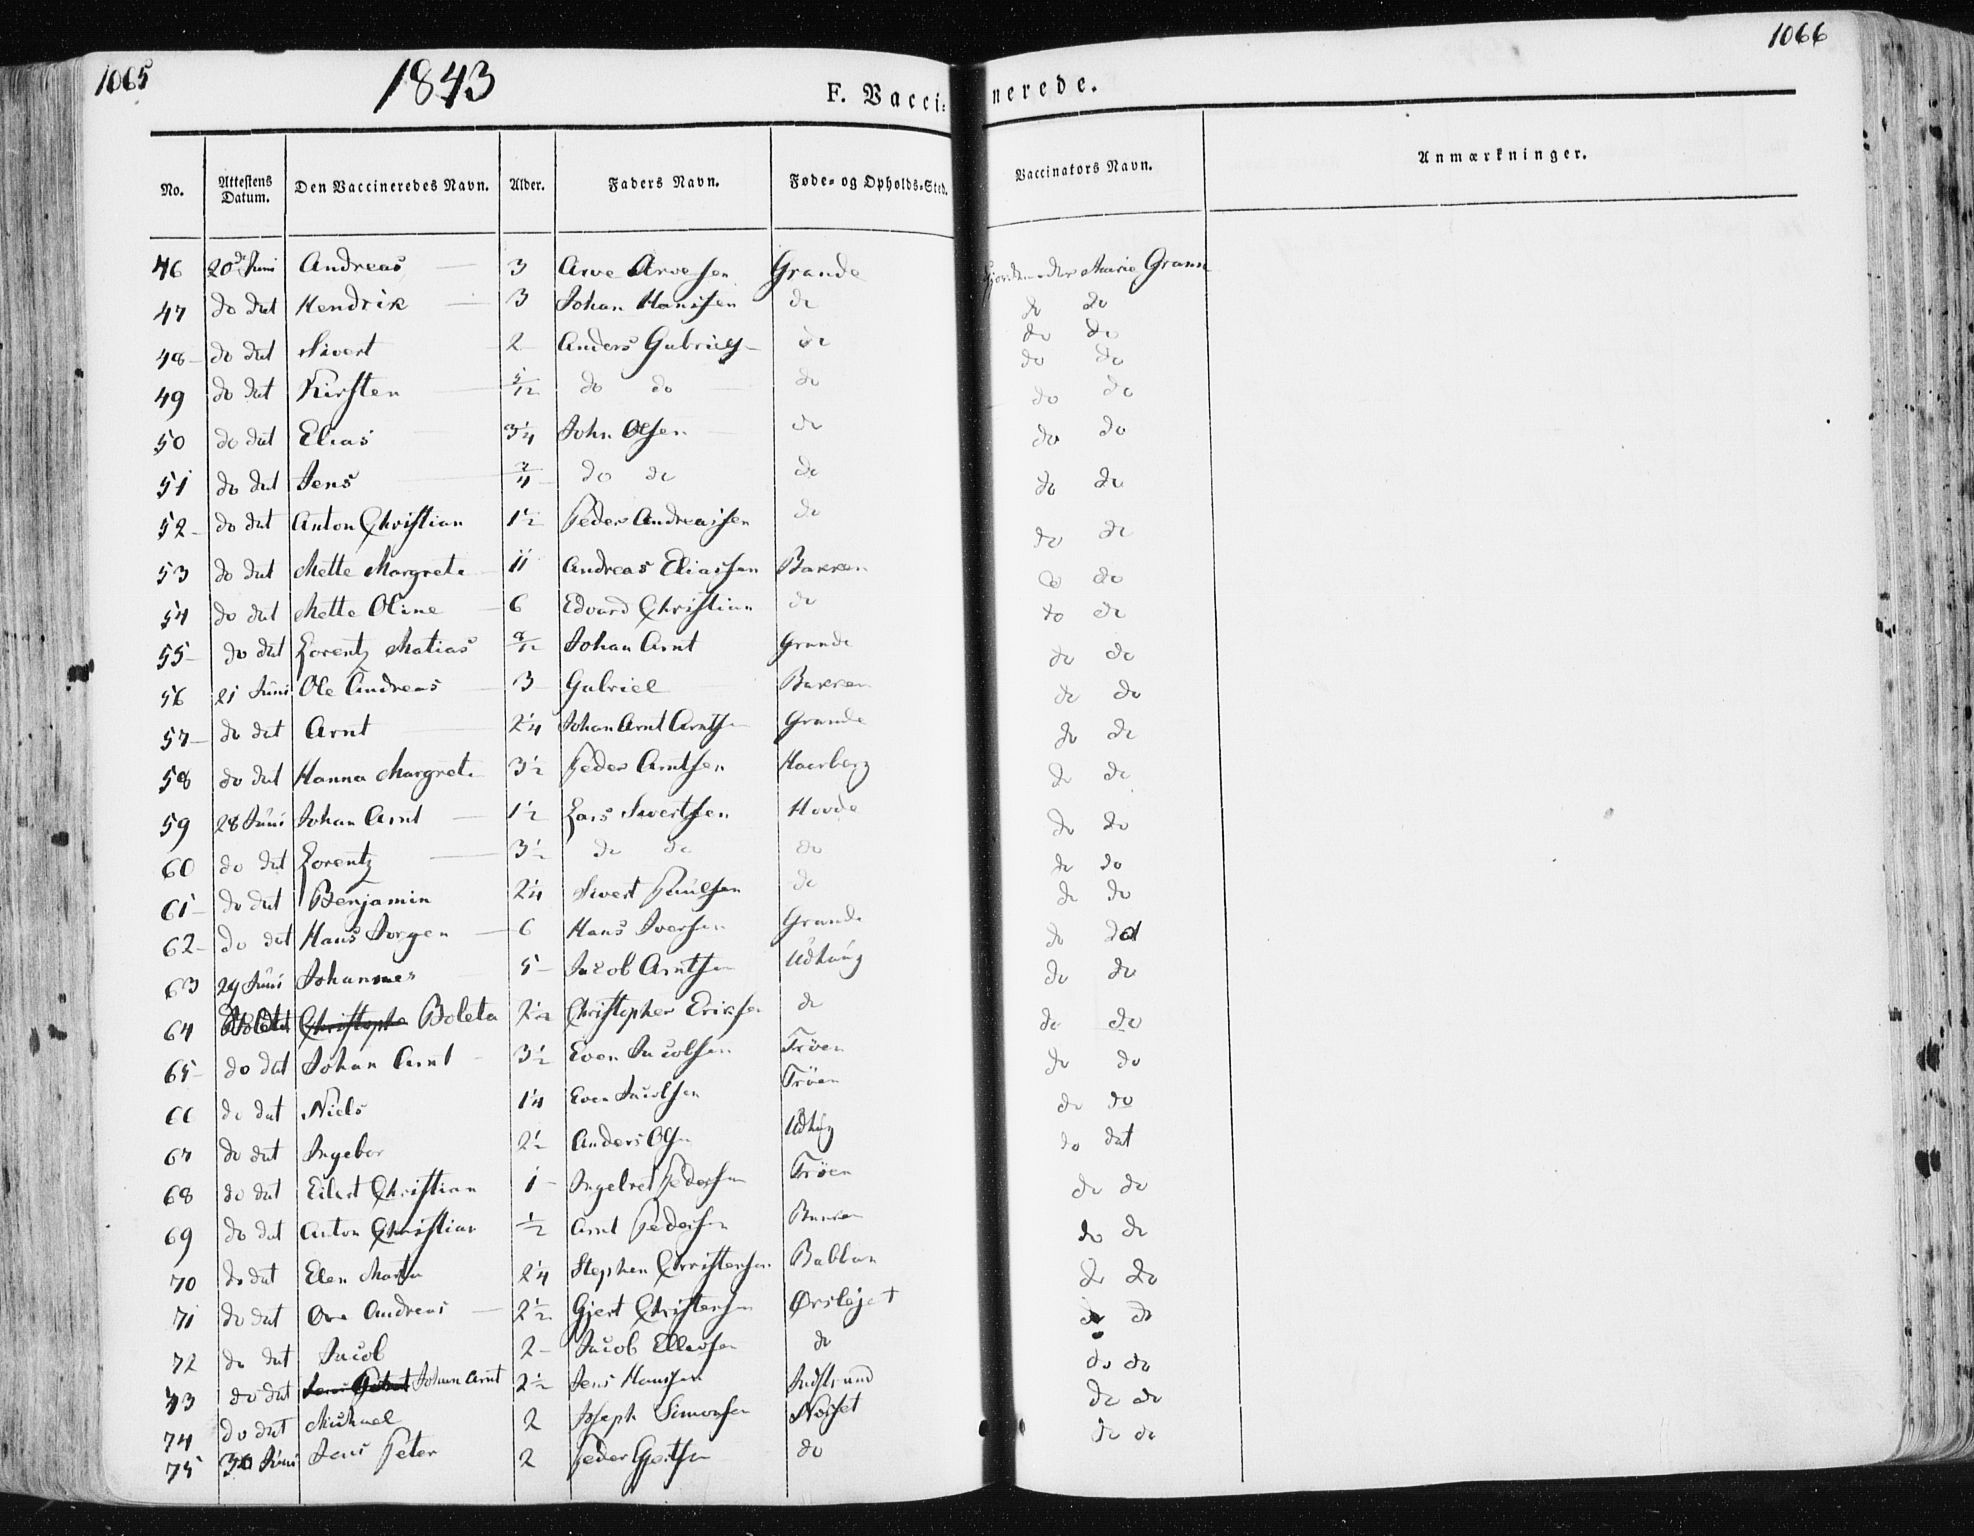 1065
1843
F. Vaccinerede.
1066
No. Attestens Datum. Den Vaccineredes Navn. Alder. Faders Navn. Føde- og Opholds-Sted. Vaccinators Navn. Anmærkninger.
46 20de Juni Andreas 3 Arve Arvesen Grande Marie Grann
47 do dat Hendrik 3 Johan Hanssen do do do
48 do dat Sivert 2 Anders Gabriels do do do
49 do dat Kirsten 5/12 do do do do do
50 do dat Elias 3 1/4 John Olsen do do do
51 do dat Jens 3/4 do do do do do
52 do dat Anton Christian 1 1/2 Peder Andreassen do do do
53 do dat Mette Margrete 11 Andreas Eliassen Bakken do do
54 do dat Mette Oline 6 Edvard Christian do do do
55 do dat Lorentz Matias 8/12 Johan Arnt Grande do do
56 21 Juni Ole Andreas 3 Gabriel Bakken do do
57 do dat Arnt 2 1/4 Johan Arnt Arntsen Grande do do
58 do dat Hanna Margrete 3 1/2 Peder Arntsen Haarberg do do
59 28 Juni Johan Arnt 1 1/2 Lars Sivertsen Hovde do do
60 do dat Lorentz 3 1/2 do do do do do
61 do dat Benjamin 2 1/4 Sivert Paulsen do do do
62 do dat Hans Jorgen 6 Hans Iversen Grande do do
63 29 Juni Johannes 5 Jacob Arntsen Udhaug do do
64 Boleta 2 1/2 Christopher Eriksen do do do
65 do dat Johan Arnt 3 1/2 Even Jacobsen Tröen do do
66 do dat Niels 1 1/4 Even Jacobsen Tröen do do
67 do dat Ingebor 2 1/2 Anders Olsen Udhaug do dat
68 do dat Eilert Christian 1 Pedersen Tröen do do
69 do dat Anton Christian 1/2 Arnt Pedersen do do
70 do dat Elen Marta 2 1/4 Stephen Christensen do do
71 do dat Andreas 2 1/2 Gjert Christensen do do
72 do dat Jacob 2 Jacob Ellevsen do do do
73 do dat Johan Arnt 2 1/2 Jens Hanssen Indstrand do do
74 do dat Michael 2 Joseph Simonsen do do
75 30 Juni Jens Peter 2 Peder Gjertsen do